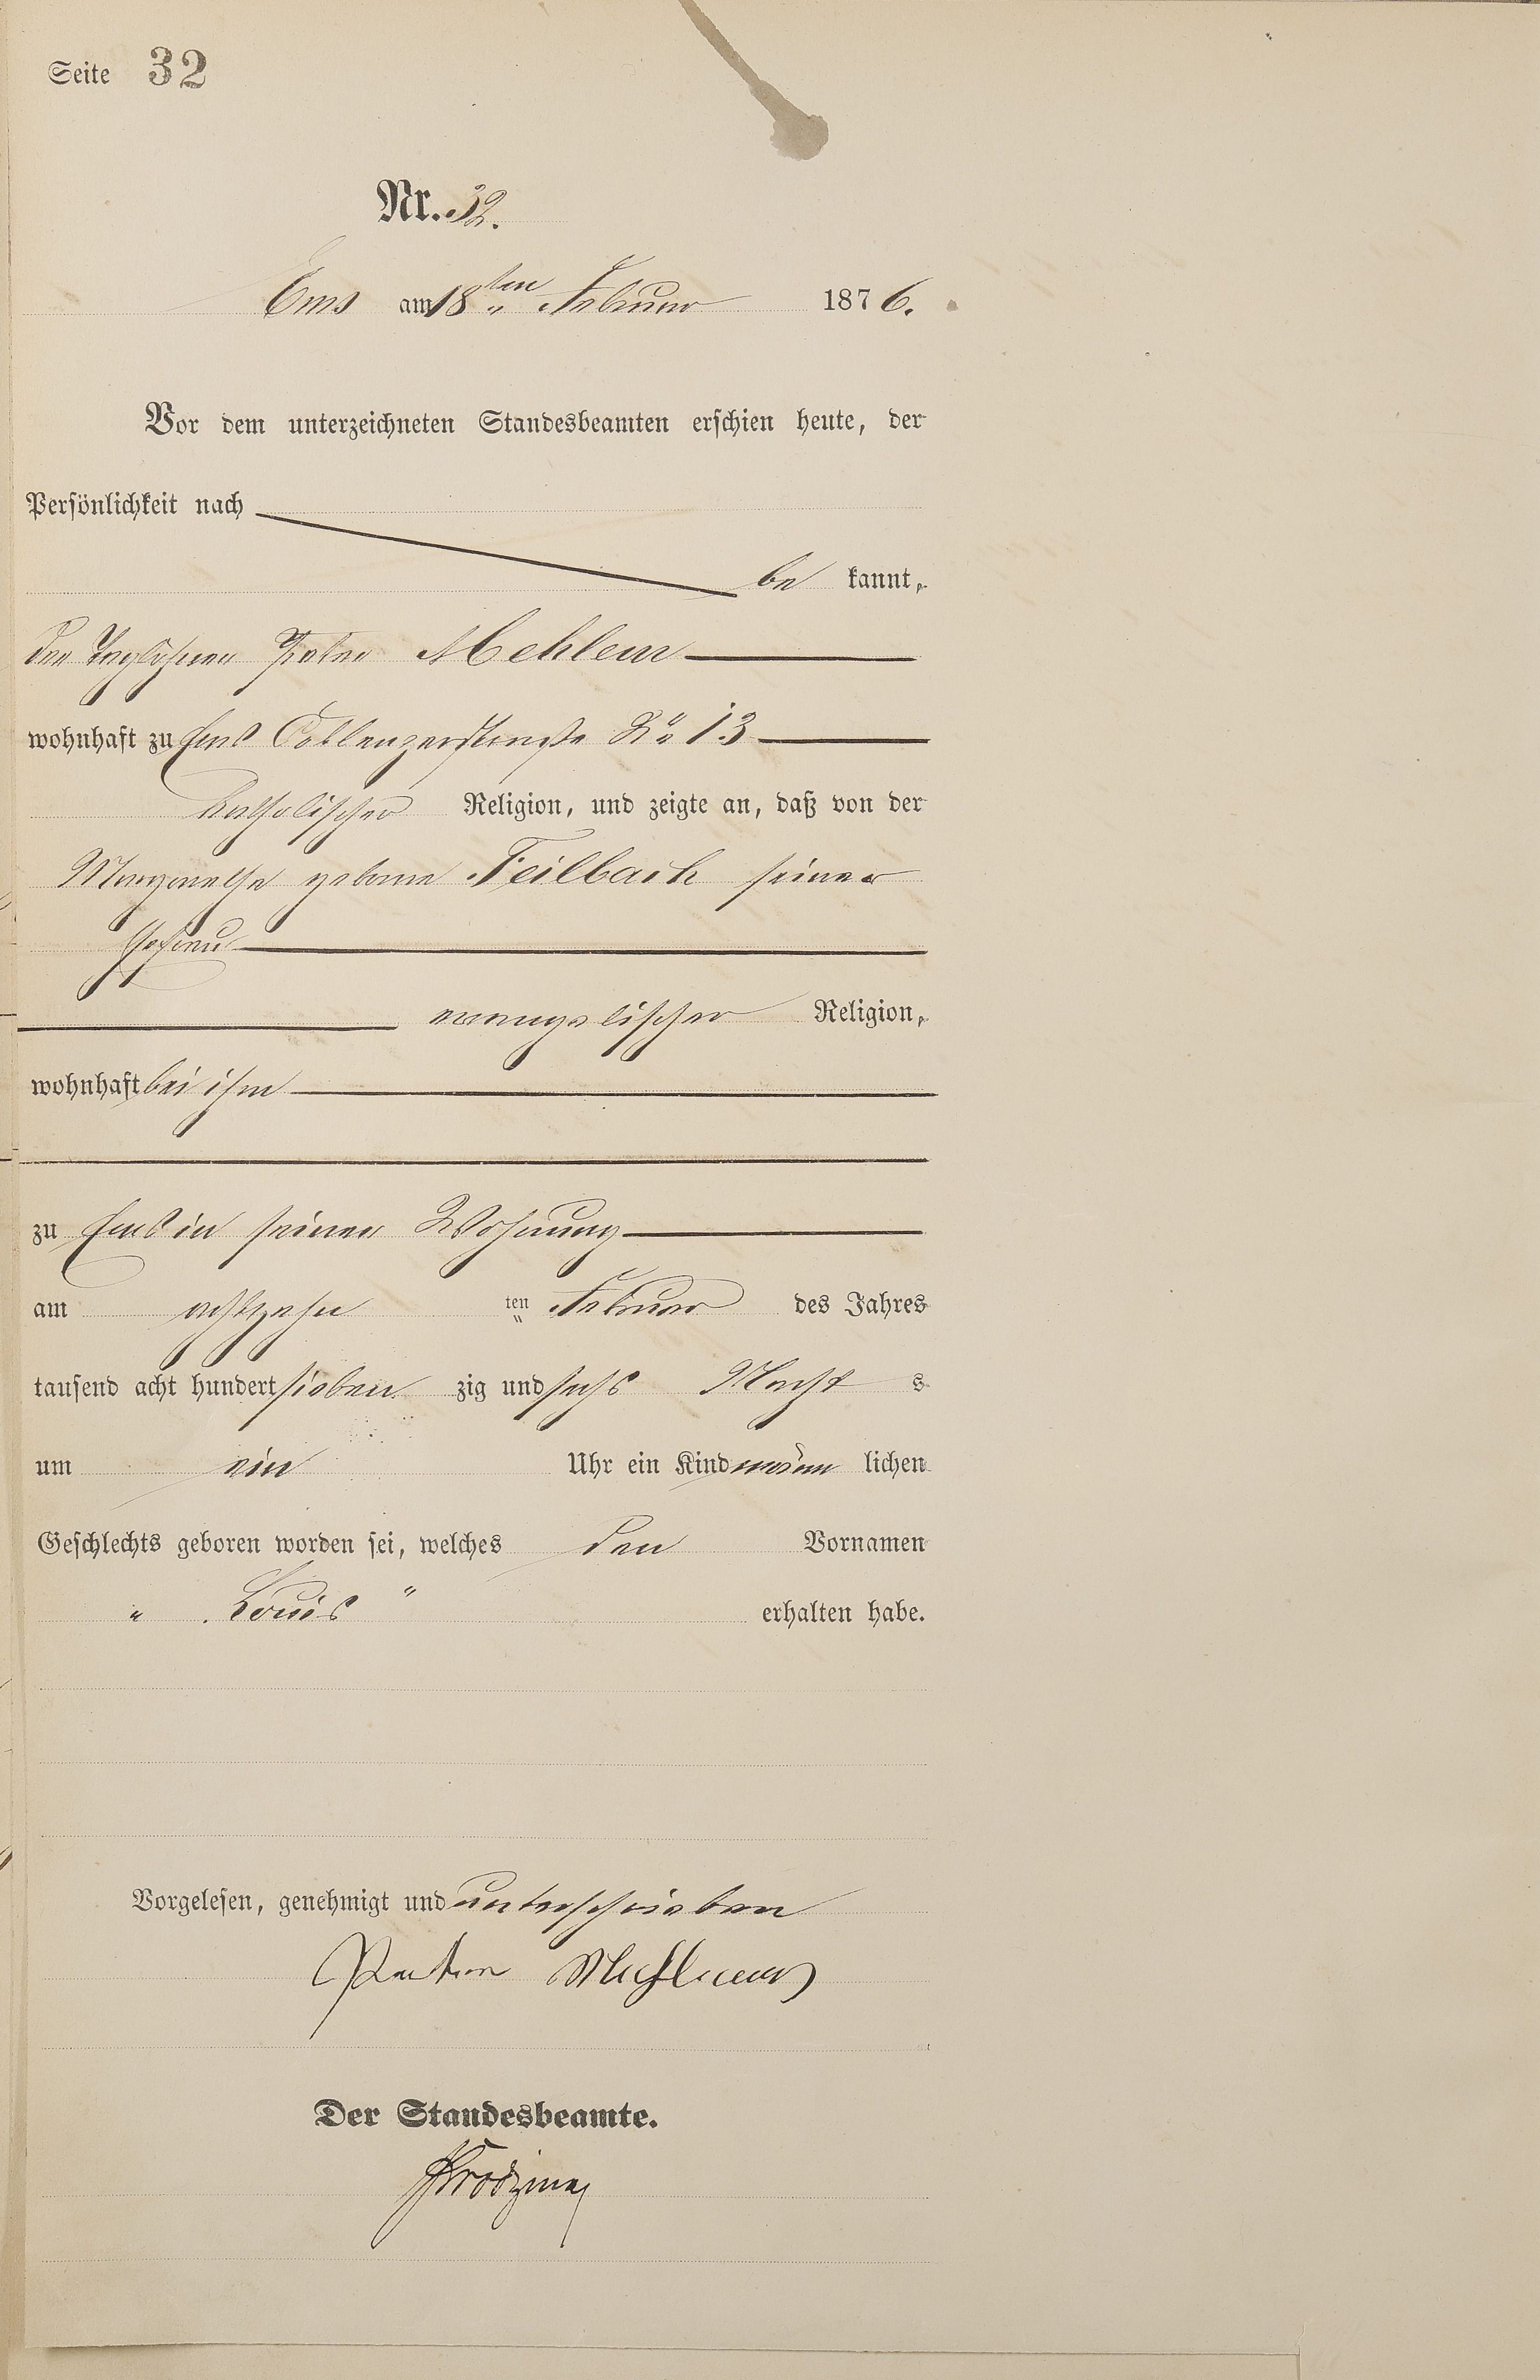 Seite 32
Nr. 32.
Ems am 18ten Februar 1876.
Vor dem unterzeichneten Standesbeamten erschien heute, der
Persönlichkeit nach
be kannt,
der Taglöhner Peter Mehlem
wohnhaft zu Ems Coblenzerstraße No 13
katholischer Religion, und zeigte an, daß von der
Margarethe geborne Feilbach seiner
Ehefrau
evangelischer Religion,
wohnhaft bei ihm
zu Ems in seiner Wohnung
am achtzehn ten Februar des Jahres
tausend acht hundert sieben zig und sechs Nacht s
um ein Uhr ein Kind männ lichen
Geschlechts geboren worden sei, welches den Vornamen
„ Louis “ erhalten habe.
Vorgelesen, genehmigt und unterschrieben
Peter Mehlem
Der Standesbeamte.